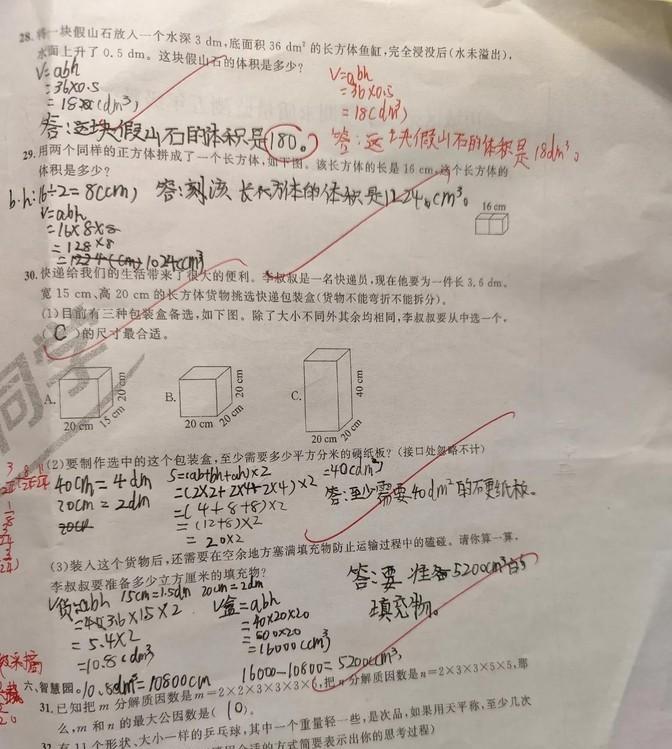 28.将一块假山石放入一个水深 3 dm,底面积 36 dm² 的长方体鱼缸,完全浸没后(水未溢出),
水面上升了 0.5 dm。这块假山石的体积是多少?
V=abh
=36×0.5
=18(dm³)
答:这块假山石的体积是180。
V=abh
=36×0.5
=18(dm³)
答:这块假山石的体积是18dm³。
29.用两个同样的正方体拼成了一个长方体,如下图。该长方体的长是 16 cm,这个长方体的
体积是多少?
b.h:16÷2=8(cm)
V=abh
=16×8×8
=128×8
1024(cm³
长方体的体积是
cm³。
16 cm
30.快递给我们的生活带来了很大的便利。李叔叔是一名快递员,现在他要为一件长 3.6 dm、
宽 15 cm、高 20 cm 的长方体货物挑选快递包装盒(货物不能弯折不能拆分)。
(1)目前有三种包装盒备选,如下图。除了大小不同外其余均相同,李叔叔要从中选一个,
( C )的尺寸最合适。
A.
20 cm
15 cm
20 cm
B.
20 cm
20 cm
20 cm
C.
20 cm
20 cm
40 cm
同学
(2)要制作选中的这个包装盒,至少需要多少平方分米的硬纸板?(接口处忽略不计)
40cm=4dm
20cm=2dm
S=(ab+bh+ah)×2
=(2×2+2×4+2×4)×2
=(4+8+8)×2
=(12+8)×2
=20×2
=40(dm²)
答:至少需要40dm²的硬纸板。
(3)装入这个货物后,还需要在空余地方塞满填充物防止运输过程中的磕碰。请你算一算,
李叔叔要准备多少立方厘米的填充物?
V货=abh
15cm=1.5dm 20cm=2dm
=5.4×2
=10.8(dm³)
V盒=abh
=40×20×20
=800×20
=16000(cm³)
答:要准备5200cm³的
填充物。
10.8dm³=10800cm
16000-10800=5200(cm³)
六、智慧园。
31.已知把 m 分解质因数是 m=2×2×3×3×3×5,把 n 分解质因数是 n=2×3×3×5×5,那
么,m 和 n 的最大公因数是( )。
32.有 11 个形状、大小一样的乒乓球,其中一个重量轻一些,是次品,如果用天平称,至少几次
合适的方式简要表示出你的思考过程)